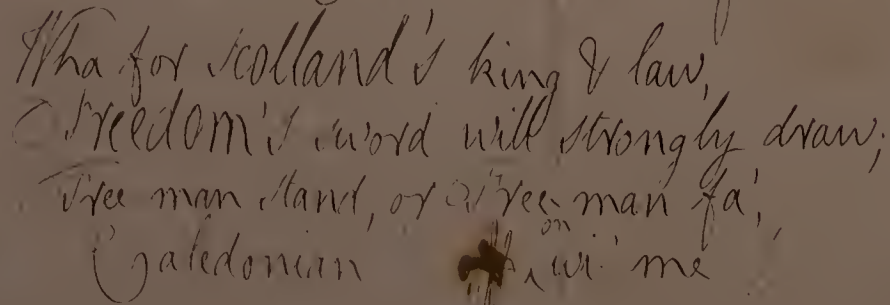 Wha for Scotland's king & law,
Freedom's sword will strongly draw;
Free man stand, or Free-man fa',
Caledonian on wi' me